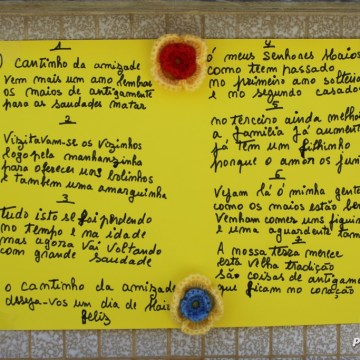 1
O cantinho da amizade
vem mais um ano lembrar
os maios de antigamente
para as saudades matar
2
Vizitavam-se os vezinhos
logo pela manhanzinha
para oferecer uns bolinhos
e tambem uma amarguinha
3
Tudo isto se foi perdendo
no tempo e na idade
mas agora vai voltando
com grande saudade
o cantinho da amizade
deseja-vos um dia de
feliz
4
ó meus senhores Maios
como teem passado
no primeiro ano
e no segundo casados
5
no terceiro ainda
a familia já
já tem um filhinho
porque o amor os
6
Vejam lá ó minha
como os maios estão
Venham comer uns
e uma aguardente
7
A nossa terra merece
esta velha tradição
são coisas de
que ficam no coração